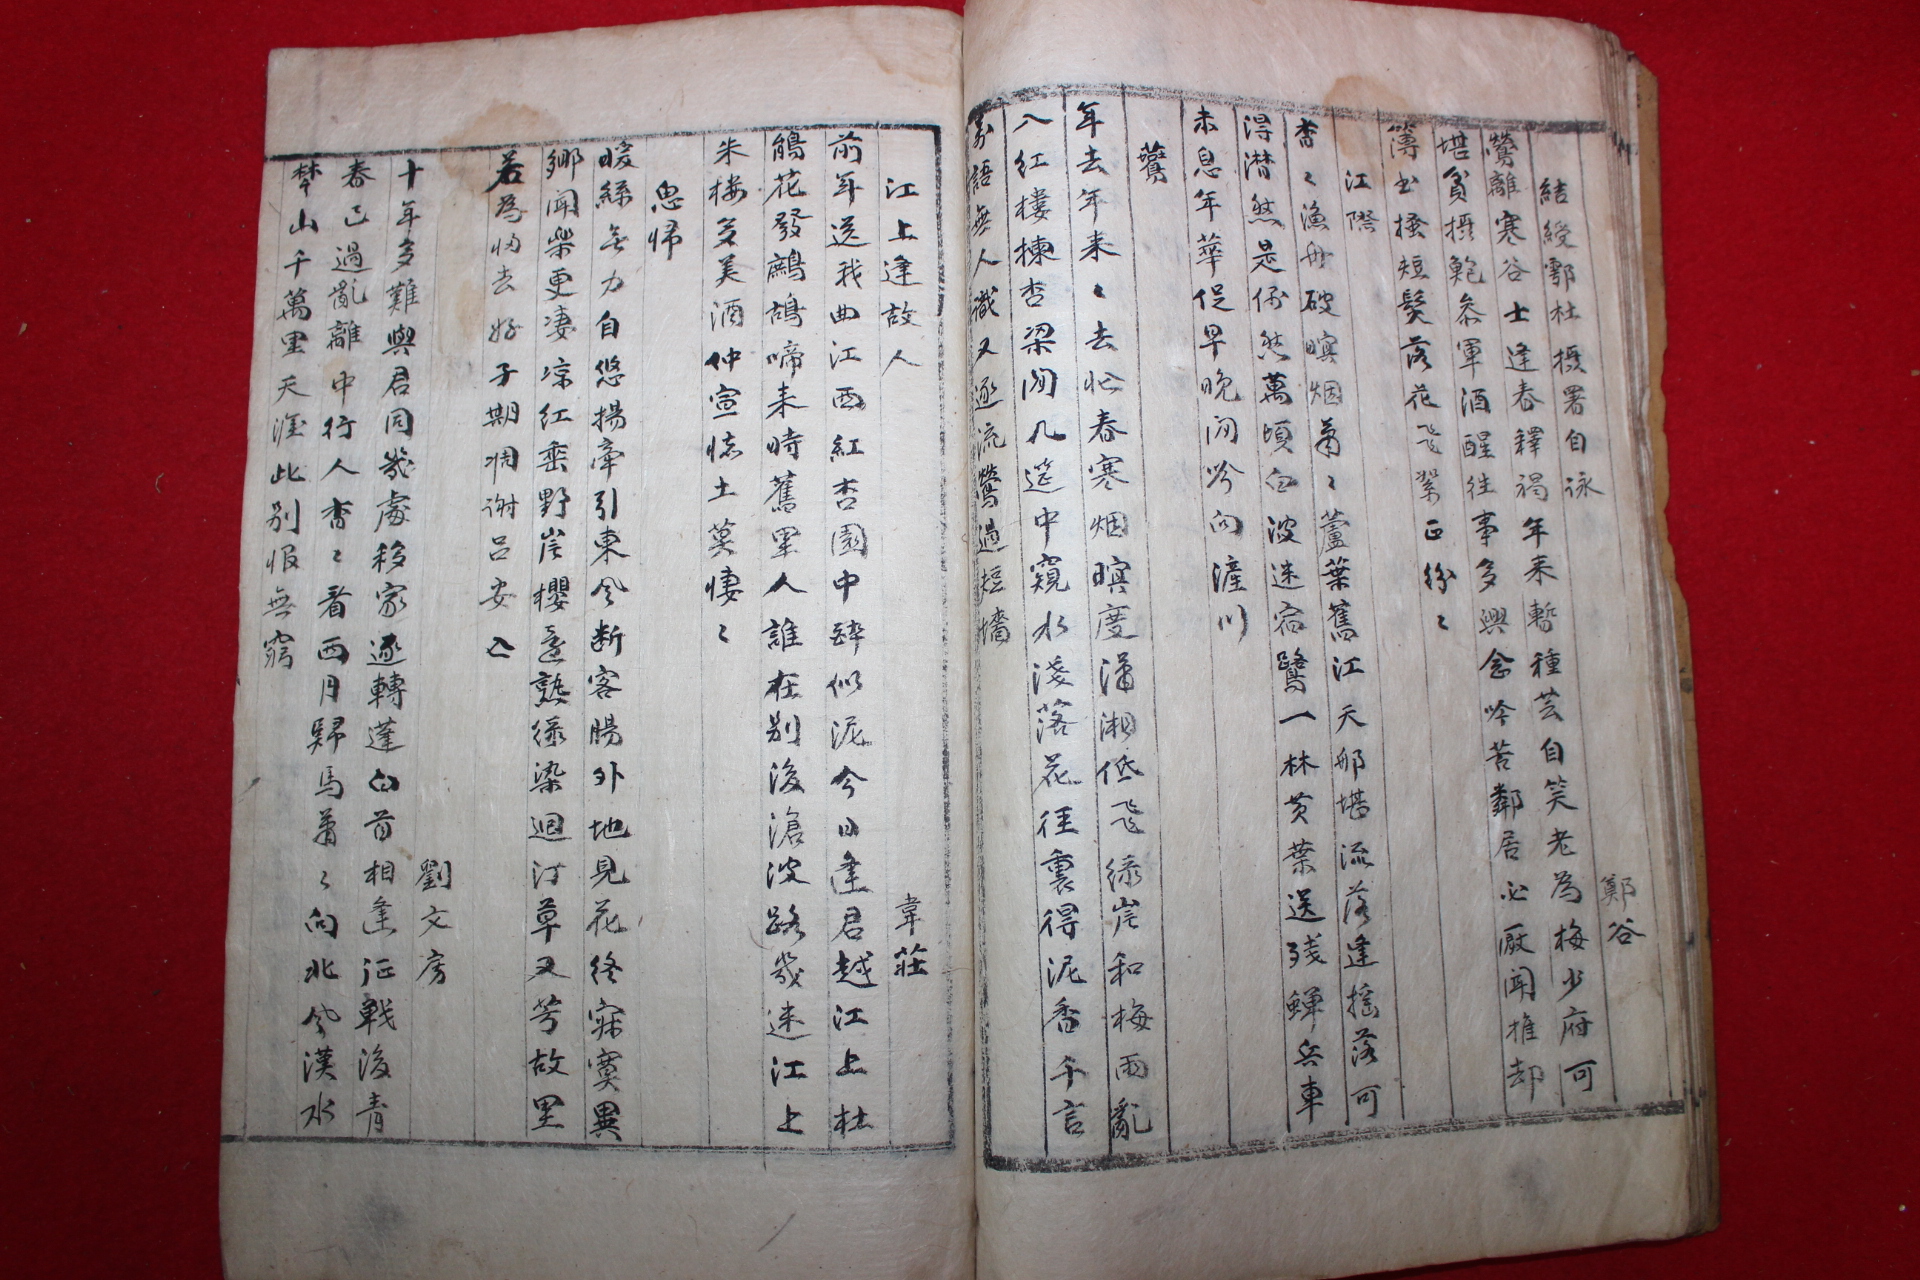 鄭谷
結綬鄠杜攝署自詠
鶯離寒谷士逢春釋褐年来暫種芸自笑老為梅少府可
堪貧攝鮑參軍酒醒往事多興念吟苦鄰居必厭聞推却
簿書搔短髮落花飛絮正紛々
江際
杳々漁舟破暝烟蕭々蘆葉舊江天那堪流落逢搖落可
得潸然是偶然萬頃白波迷宿鷺一林黄葉送残蟬兵車
未息年華促早晚閑吟向滻川
鷰
年去年来々去忙春寒烟暝度瀟湘低飛綠岸和梅雨亂
入紅樓揀杏梁閑几筵中窺水淺落花徑裏得泥香千言
萬語無人識又逐流鶯過短墻
江上逢故人
韋莊
前年送我曲江西紅杏園中醉似泥今日逢君越江上杜
鵑花發鷓鴣啼来時舊里人誰在别後滄波路幾迷江上
朱樓多美酒仲宣懷土莫悽々
思帰
暖絲無力自悠揚牽引東風断客腸外地見花終寂寞異
鄉聞樂更凄凉紅垂野岸櫻還熟綠染迴汀草又芳故里
若為归去好子期凋谢吕安亡
劉文房
十年多難與君同幾處移家逐轉蓬白首相逢征戰後青
春已過亂離中行人杳々看西月歸馬蕭々向北風漢水
楚山千萬里天涯此别恨無窮